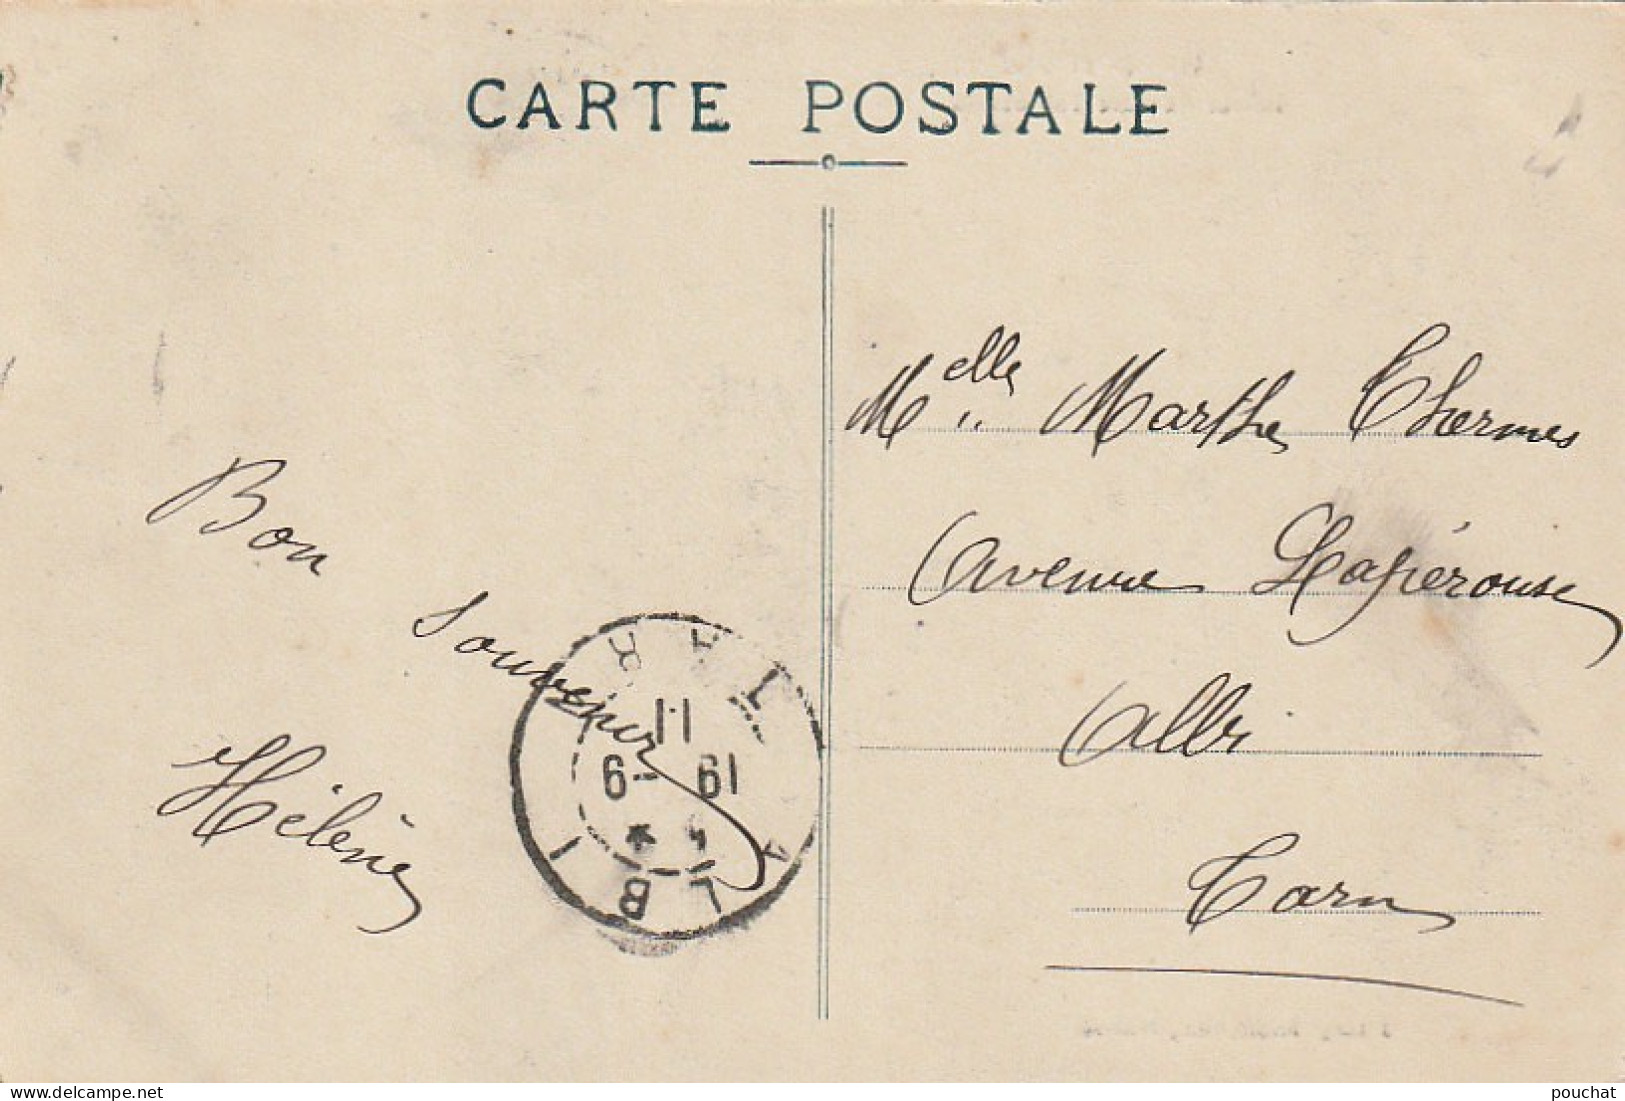 CARTE POSTALE
Bon
Souvenir
Hélène
Melle Marthe Thermes
Avenue Lapérouse
Albi
Tarn
ALBI
11
19 -6
pouchat